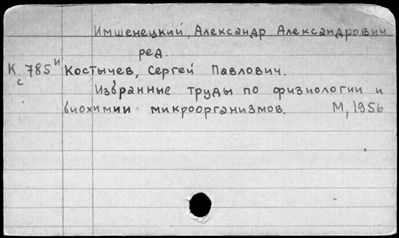 Имшенецкий, Александр Александрович
ред.
К 785 и Костычев, Сергей Павлович.
с
Избранные труды по физиологии и
биохимии микроорганизмов. М, 1956